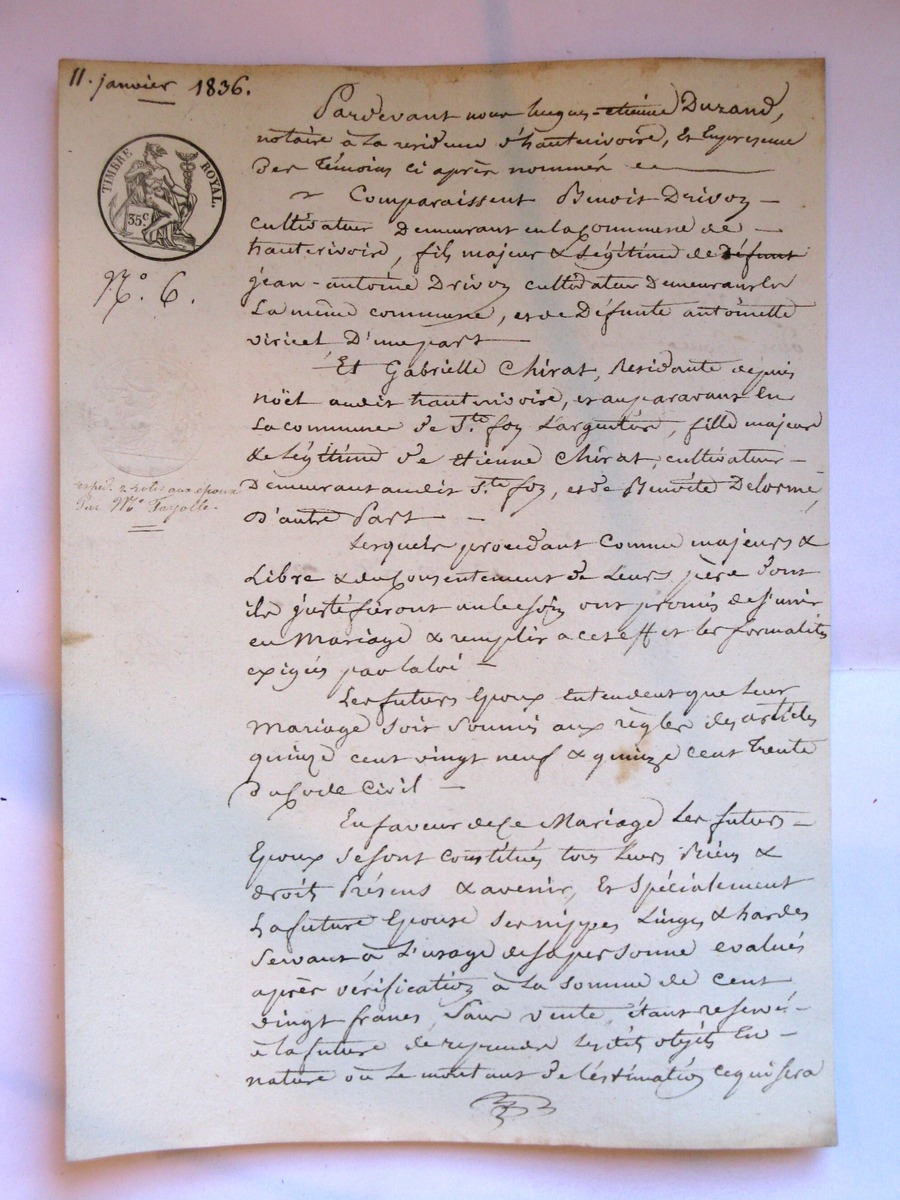 11. janvier 1836.
TIMBRE ROYAL.
35c
No. 6.
exped. 2 roles aux époux
Par Me Fayolle.
Pardevant nous hugues-etienne Durand,
notaire à la residence d'hauterivoire, et En presence
Des Témoins ci après nommés
Comparaissent Benoit Drivon
cultivateur Demeurant en la commune de
hauterivoire, fils majeur & Légitime de Défunt
jean-antoine Drivon cultivateur Demeurant En
La même commune, et de Défunte antoinette
viricel D'une part
Et Gabrielle Chirat, Residante depuis
noël audit hauterivoire, et auparavant En
La commune de Ste foy L'argentière, fille majeure
& Légitime de etienne Chirat, cultivateur
Demeurant audit Ste foy, et de Benoite Delorme,
D'autre Part
Lesquels procedant comme majeurs &
Libre & du Consentement de Leurs père dont
ils justifieront au besoin ont promis de s'unir
en Mariage & remplir a cet effet les formalités
exigées par la loi
Les futurs Epoux Entendent que Leur
Mariage soit soumis aux règles des articles
quinze cent vingt neuf & quinze cent trente
du Code Civil
En faveur de Ce Mariage Les futurs
Epoux se sont constitués tous Leurs Biens &
droits Présens & avenir, Et Spécialement
La future Epouse Ses nippes Linges & hardes
Servant à L'usage de sa personne evalués
après vérification à La somme de cent
vingt francs, Sans vente, étant reservé
à la future de reprendre Lesdits objets En
nature ou Le montant de l'éstimation ce qui sera